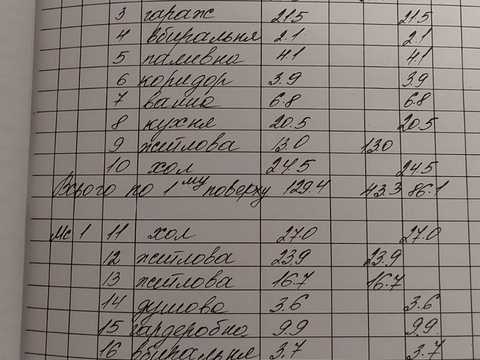 3 гараж 21.5 21.5
4 вбиральня 2.1 2.1
5 паливна 4.1 4.1
6 коридор 3.9 3.9
7 ванна 6.8 6.8
8 кухня 20.5 20.5
9 житлова 13.0 13.0
10 хол 24.5 24.5
Всього по 1му поверху 129.4 43.3 86.1
Мс 1 11 хол 27.0 27.0
12 житлова 23.9 23.9
13 житлова 16.7 16.7
14 душова 3.6 3.6
15 гардеробна 9.9 9.9
16 вбиральня 3.7 3.7